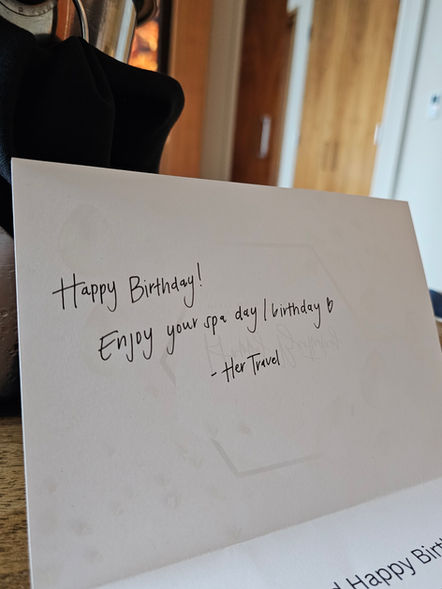 Happy Birthday!
Enjoy your spa day / birthday
- Her Travel
d Happy Birt